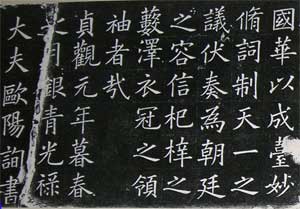 國華以成臺妙
脩詞制天一之
議伏奏為朝廷
之容信杞梓之
藪澤衣冠之領
袖者哉
貞觀元年暮春
月銀青光禄
大夫歐陽詢書